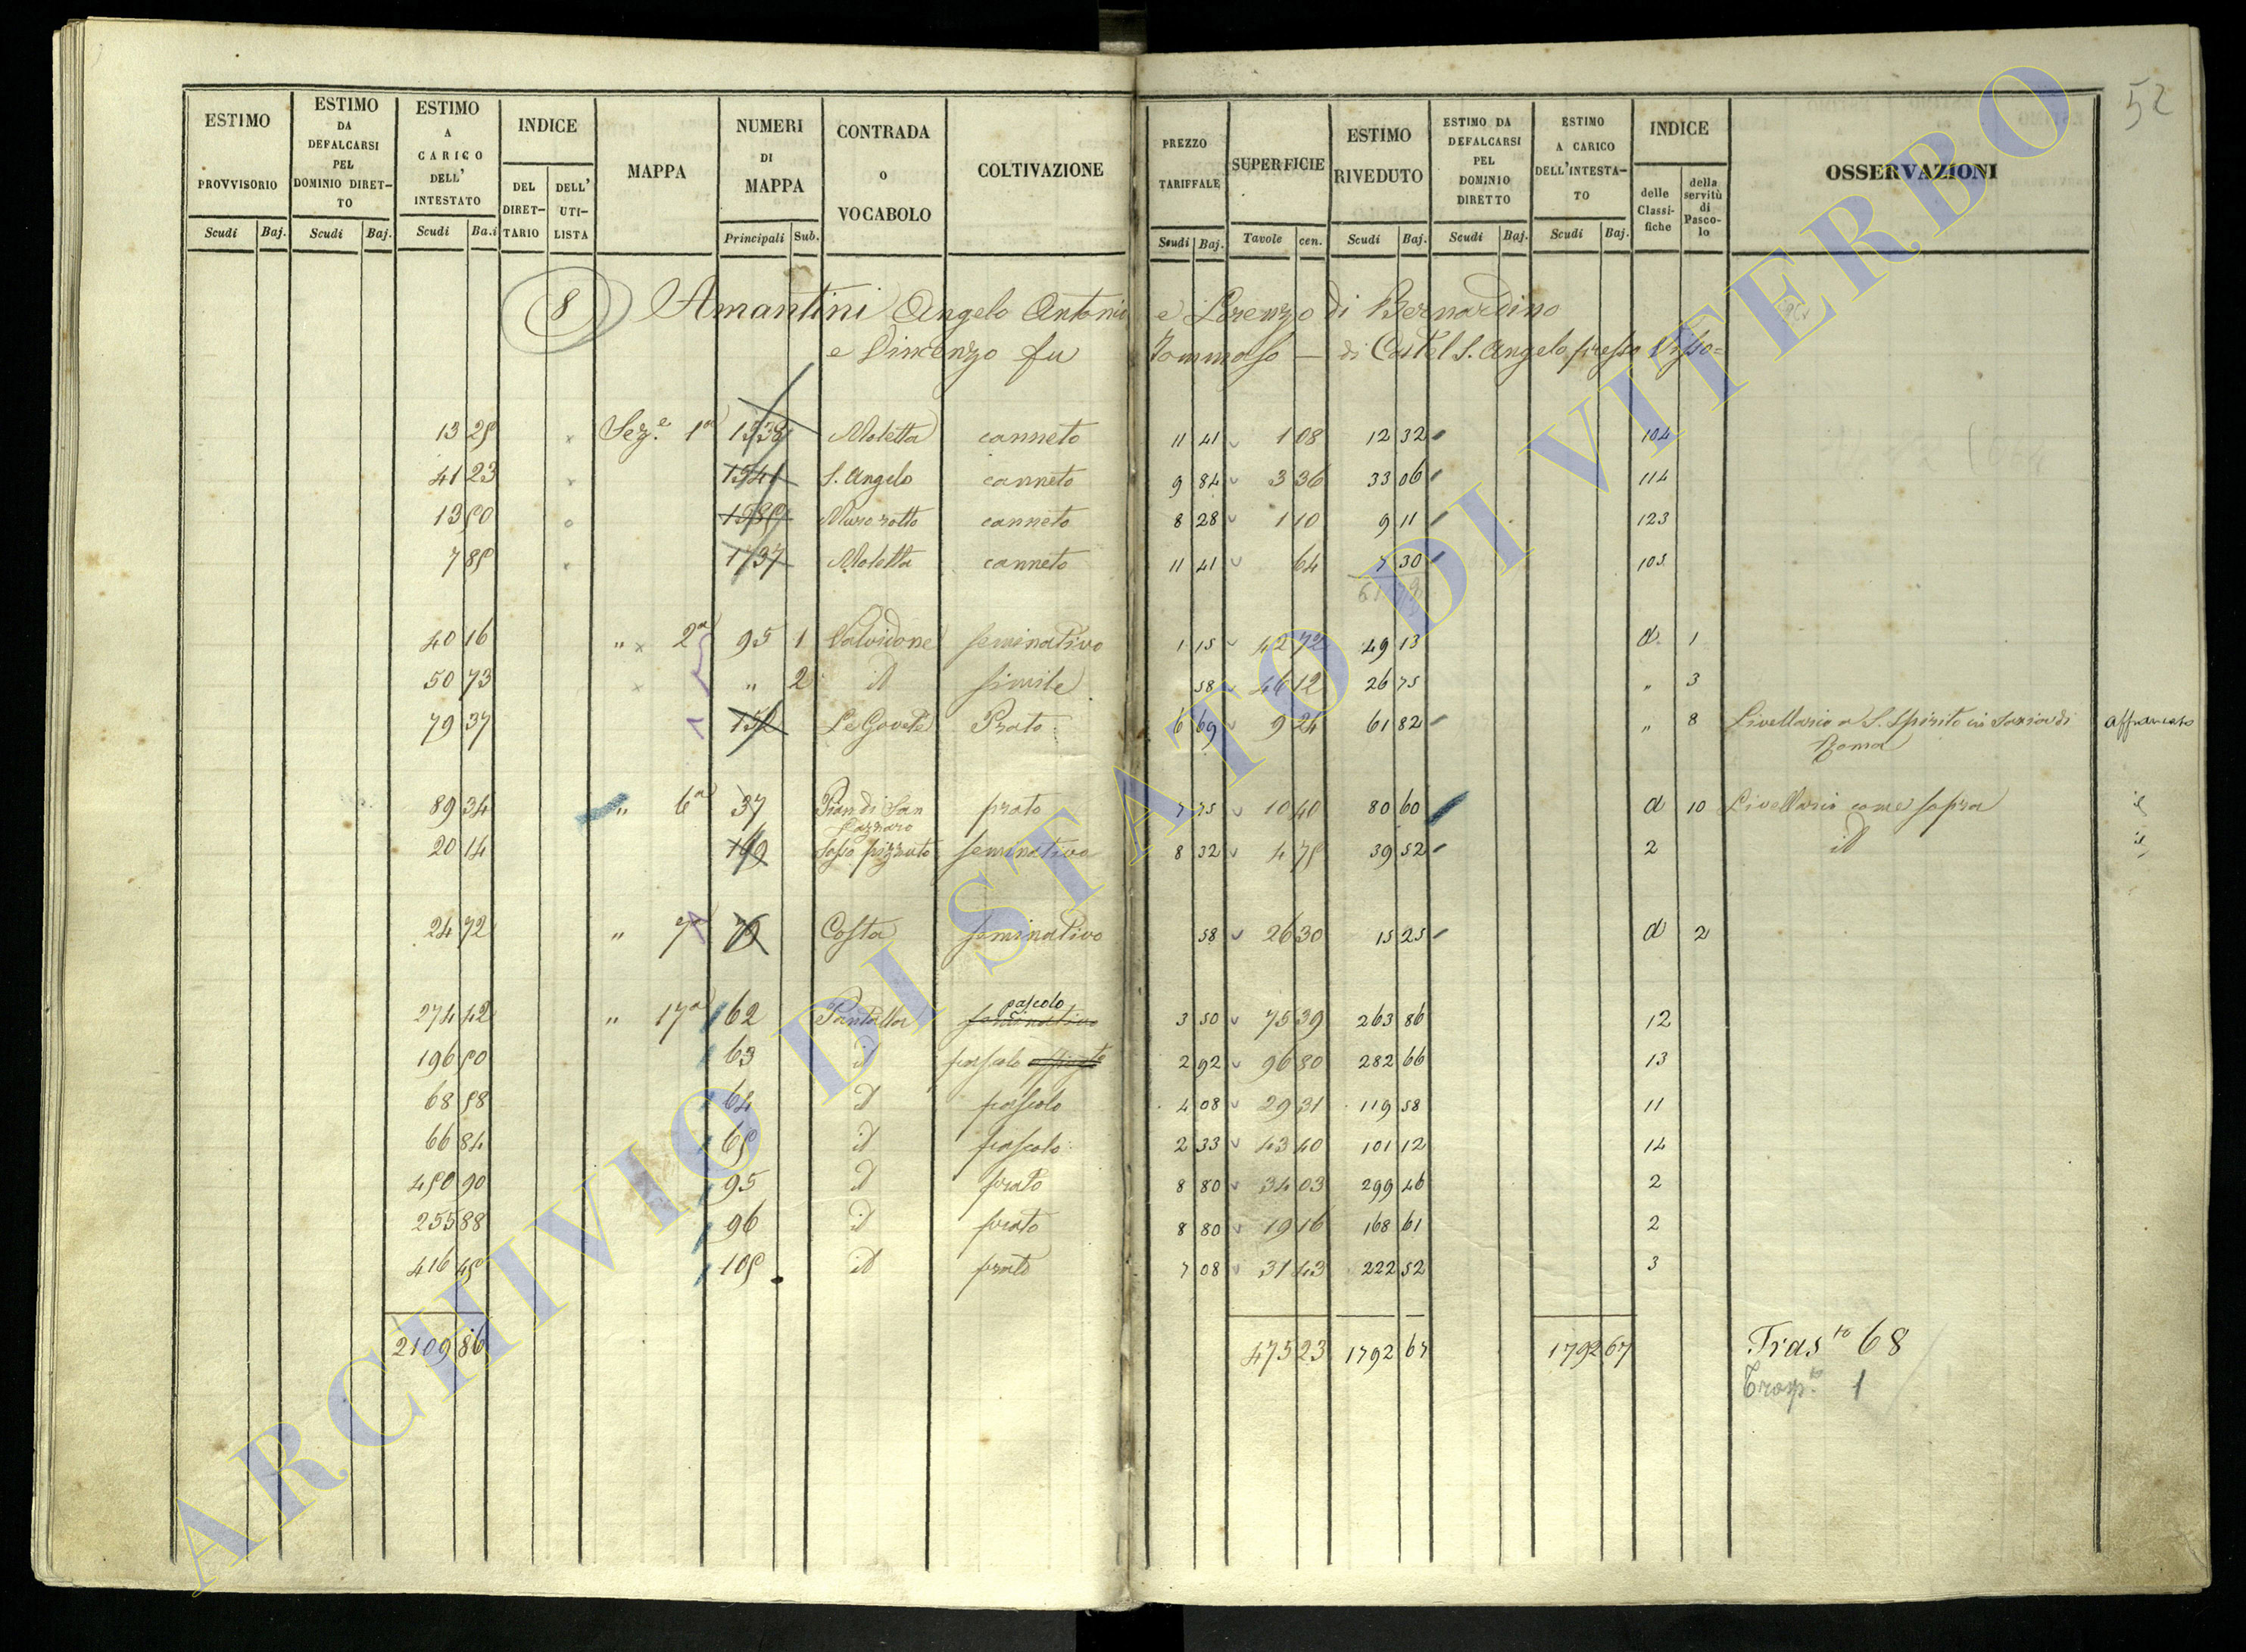 52
ESTIMO PROVVISORIO | ESTIMO DA DEFALCARSI PEL DOMINIO DIRETTO | ESTIMO A CARICO DELL' INTESTATO | INDICE | MAPPA | NUMERI DI MAPPA | CONTRADA O VOCABOLO | COLTIVAZIONE | PREZZO TARIFFALE | SUPERFICIE | ESTIMO RIVEDUTO | ESTIMO DA DEFALCARSI PEL DOMINIO DIRETTO | ESTIMO A CARICO DELL'INTESTATO | INDICE | OSSERVAZIONI
DEL DIRETTARIO | DELL' UTILISTA | delle Classifiche | della servitù di Pascolo
Scudi Baj. | Scudi Baj. | Scudi Ba.i | Principali Sub. | Scudi Baj. | Tavole cen. | Scudi Baj. | Scudi Baj. | Scudi Baj.
8 Amantini Angelo Antonio e Lorenzo di Bernardino
e Vincenzo fu Tommaso — di Castel S. Angelo presso Visso =
13 25 Sez.e 1a 1538 Moletta canneto 11 41 1 08 12 32 104
41 23 1541 S. Angelo canneto 9 84 3 36 33 06 114
13 50 Muro rotto canneto 8 28 1 10 9 11 123
7 85 1737 Moletta canneto 11 41 64 7 30 105
40 16 " 2a 95 1 Valvidone seminativo 1 15 42 72 49 13 d 1
50 73 " 2 id simile 58 46 12 26 75 " 3
79 37 152 Le Govete Prato 6 69 9 24 61 82 " 8 Livellario a S. Spirito in Sassia di Roma affrancato
89 34 " 6a 37 Pian di San Lazzaro prato 7 75 10 40 80 60 d 10 Livellario come sopra id
20 14 169 Sasso pizzuto seminativo 8 32 4 75 39 52 2 id id
24 72 " 7a 79 Costa seminativo 58 26 30 15 25 d 2
274 42 " 17a 62 Pantalla seminativo pascolo 3 50 75 39 263 86 12
196 50 63 id pascolo 2 92 96 80 282 66 13
68 58 64 id pascolo 4 08 29 31 119 58 11
66 84 65 id pascolo 2 33 43 40 101 12 14
450 90 95 id prato 8 80 34 03 299 46 2
255 88 96 id prato 8 80 19 16 168 61 2
416 45 105 id prato 7 08 31 43 222 52 3
2109 86 475 23 1792 67 1792 67 Tras.to 68
Trasp.to 1
ARCHIVIO DI STATO DI VITERBO